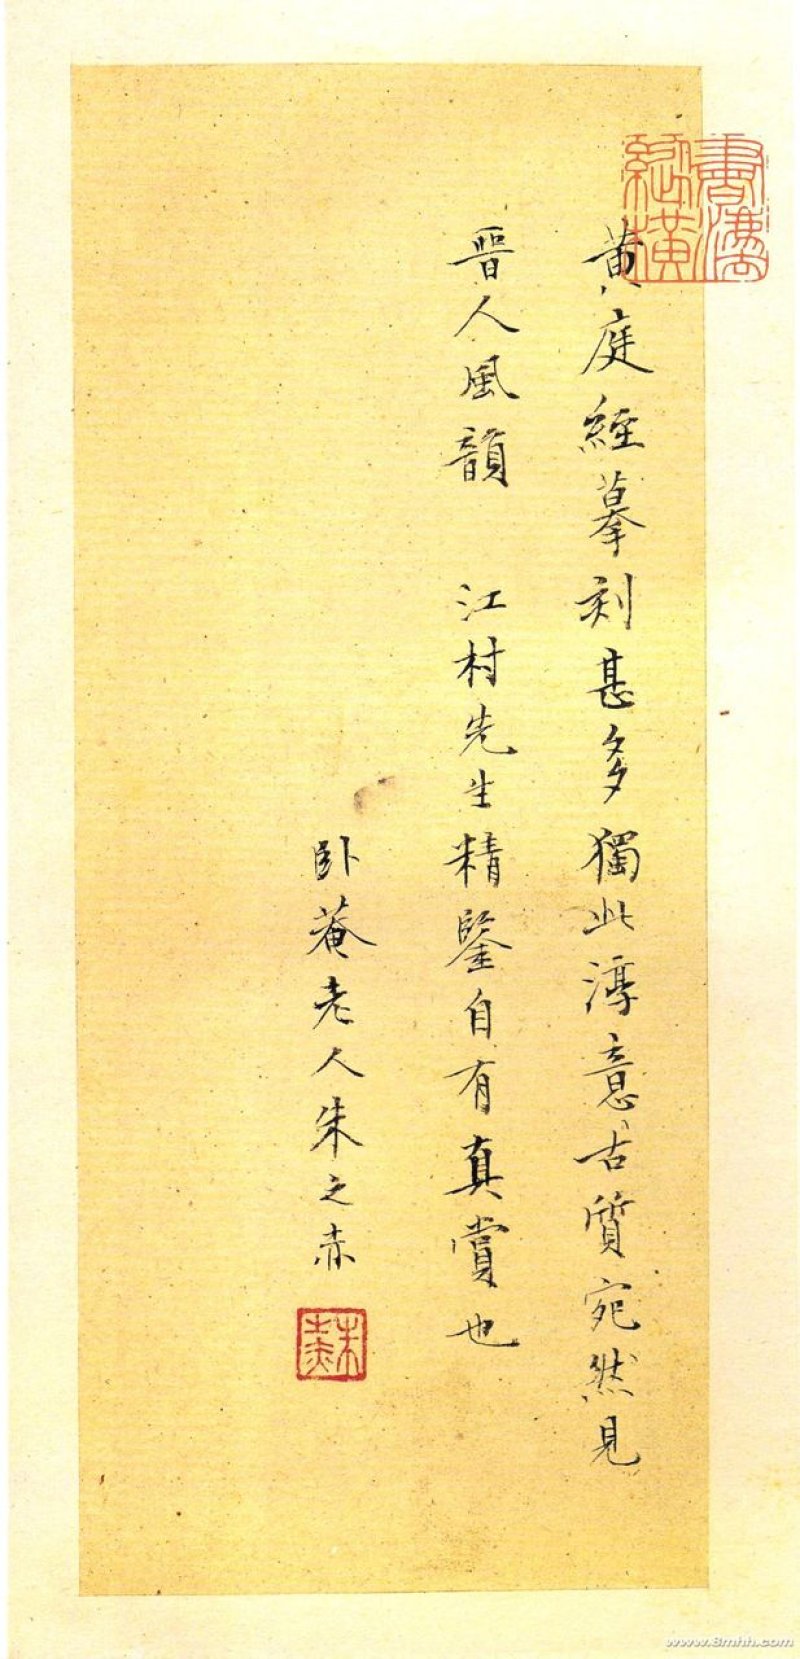 黄庭經摹刻甚多獨此淳意古質宛然見
晉人風韻 江村先生精鑒自有真賞也
卧菴老人朱之赤
朱之赤
書法縱橫
www.8mhh.com